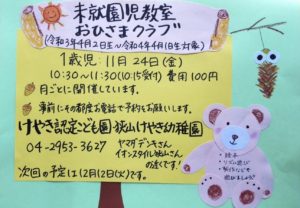 未就園児教室
おひさまクラブ
(令和3年4月2日生~令和4年4月1日生対象)
1歳児:11月24日(金)
10:30~11:30(10:15受付) 費用100円
月ごとに開催しています。
事前にその都度お電話で予約をお願いします。
けやき認定こども園 狭山けやき幼稚園
04-2953-3627
ヤマダデンキさん
イオンスタイル狭山さん
の近くです!
次回の予定は12月12日(火)です。
・絵本
・リズム遊び
・製作などで
遊びましょう♪